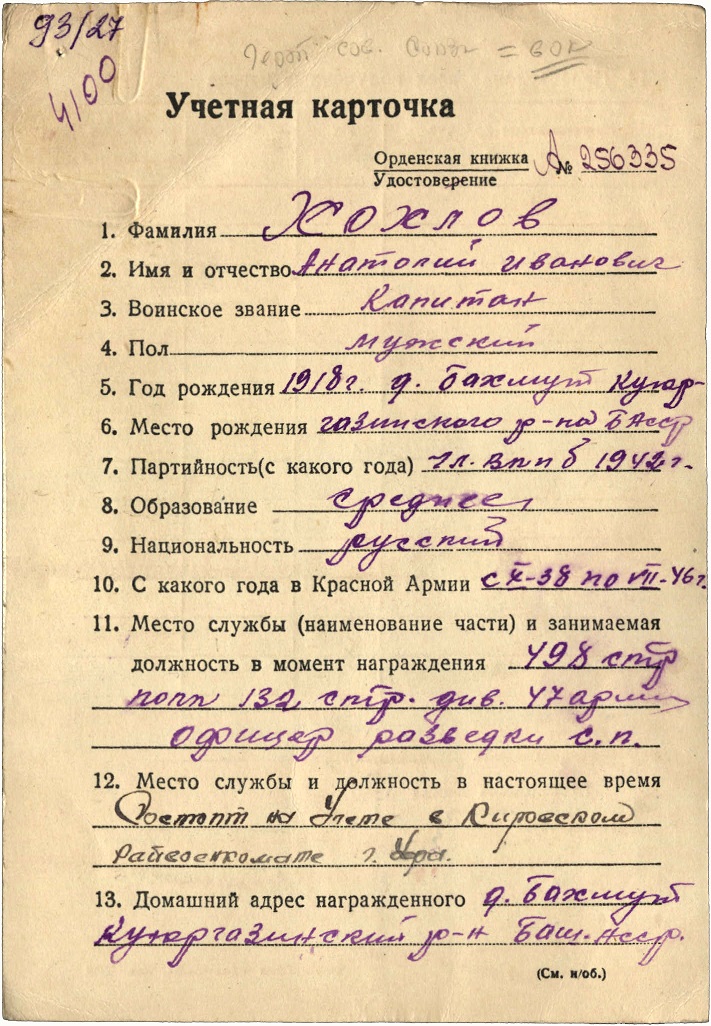 93/27
4100
сов. Союза =
Учетная карточка
Орденская книжка А № 256335
Удостоверение
1. Фамилия Хохлов
2. Имя и отчество Анатолий Иванович
3. Воинское звание Капитан
4. Пол мужский
5. Год рождения 1918г. д. Бахмут Куюр-
6. Место рождения газинского р-на БАССР
7. Партийность(с какого года) чл. ВКПб 1942г.
8. Образование среднее
9. Национальность русский
10. С какого года в Красной Армии с X-38 по VII-46г.
11. Место службы (наименование части) и занимаемая
должность в момент награждения 498 стр
полк 132 стр. див. 47 армии
офицер разведки с.п.
12. Место службы и должность в настоящее время
Состоит на Учете в Кировском
Райвоенкомате г. Уфа.
13. Домашний адрес награжденного д. Бахмут
Куюргазинский р-н Баш.АССР.
(См. н/об.)